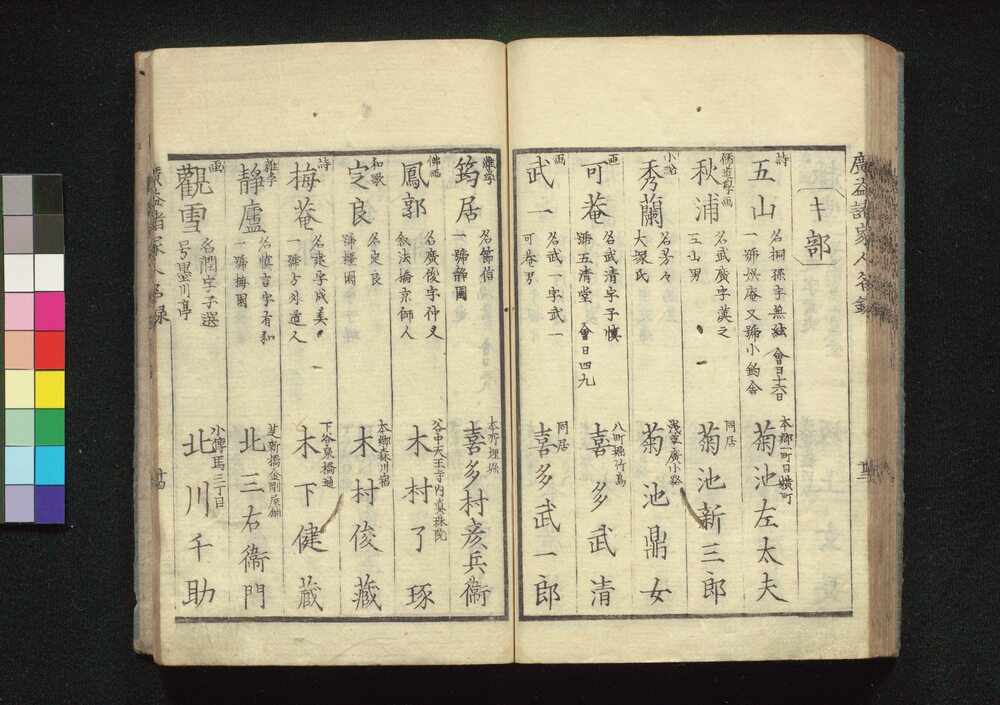 廣益諸家人名録
キ部
詩
五山
名桐孫字無絃 會日十六日
一號娯庵又號小釣舎
本郷一町目横町
菊池左太夫
儒道學画
秋浦
名武廣字漢之
五山男
同居
菊池新三郎
秀蘭
名芳々
大塚氏
浅草廣小路
菊池鼎女
画
可菴
名武清字子慎
號五清堂 會日四九
八町堀竹島
喜多武清
画
武一
名武一字武一
可菴男
同居
喜多武一郎
雜學
筠居
名節信
一號静園
本所埋堀
喜多村彦兵衞
佛画
鳳郭
名廣俊字仲叉
叙法橋京師人
谷中天王寺内真珠院
木村了琢
和歌
定良
名定良
號橿園
本郷森川宿
木村俊藏
詩
梅菴
名ー字成美
一號方外道人
下谷泉橋通
木下健藏
雜學
静廬
名慎言字有和
一號梅園
芝新橋金剛屋鋪
北三右衞門
画
觀雪
名潤字子選
号墨川亭
小傳馬三丁目
北川千助
廣益諸家人名録